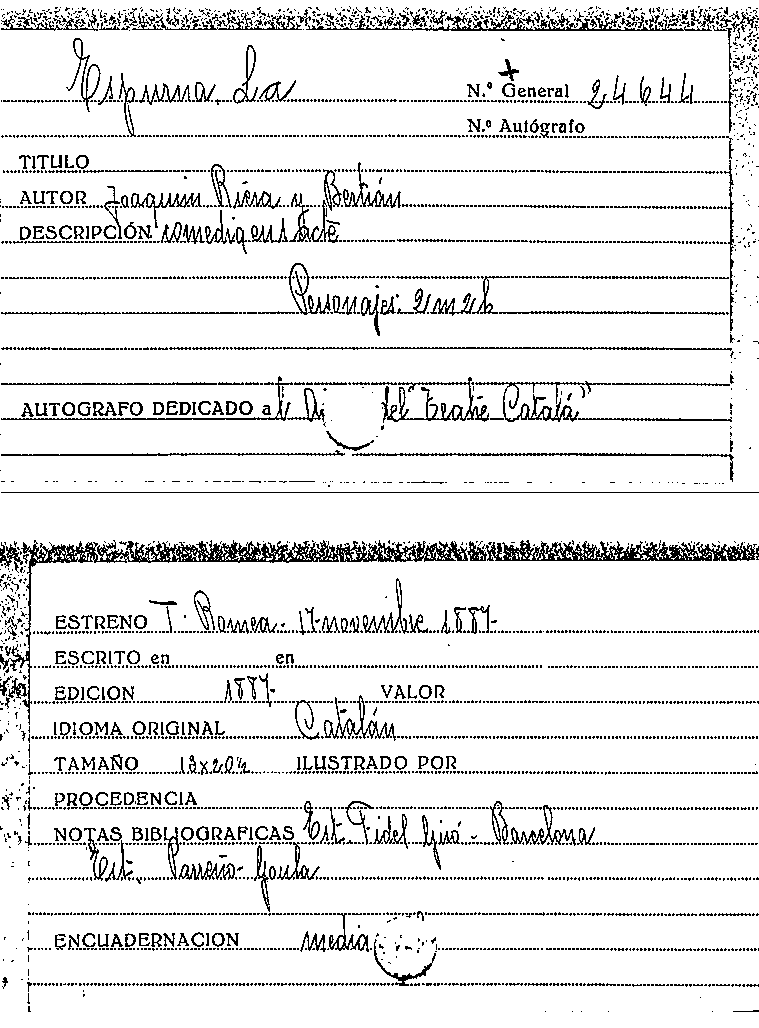 Espurna. La
N.º General 24644
N.º Autógrafo
TITULO
AUTOR Joaquin Riera y Bertrán
DESCRIPCIÓN comedia en 1 acte
Personajes: 2 m 2 h
AUTOGRAFO DEDICADO al del "Teatre Catalá"
ESTRENO T. Romea - 17-novembre 1887-
ESCRITO en en
EDICION 1887- VALOR
IDIOMA ORIGINAL Catalán
TAMAÑO 13x20½ ILUSTRADO POR
PROCEDENCIA
NOTAS BIBLIOGRAFICAS Est. Fidel Giró - Barcelona
Est. Parreño- Gaula
ENCUADERNACION media